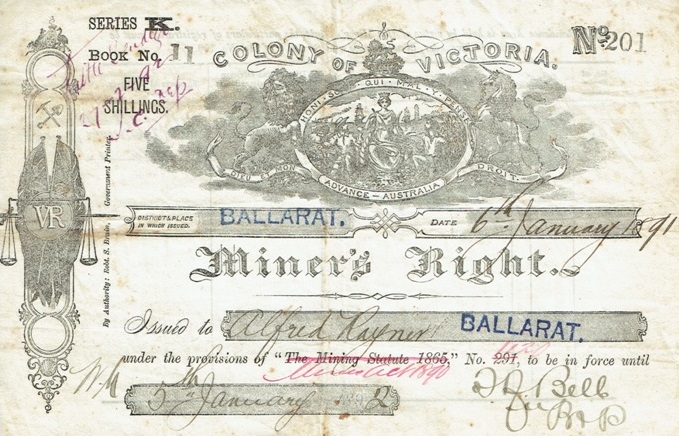 SERIES K.
Book No. 11
FIVE
SHILLINGS.
COLONY OF VICTORIA.
No. 201
HONI · SOIT · QUI · MAL · Y · PENSE
DIEU ET MON DROIT
ADVANCE – AUSTRALIA
VR
By Authority: Robt. S. Brain, Government Printer.
DISTRICT & PLACE
IN WHICH ISSUED.
BALLARAT.
DATE 6th January 1891
Miner's Right.
Issued to Alfred Rayner BALLARAT.
under the provisions of "The Mining Statute 1865." No. 291, to be in force until
5th January 2
Bell